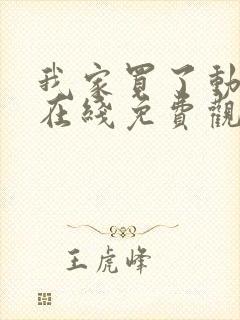 我家買了動
在綫免費觀
王虎峰